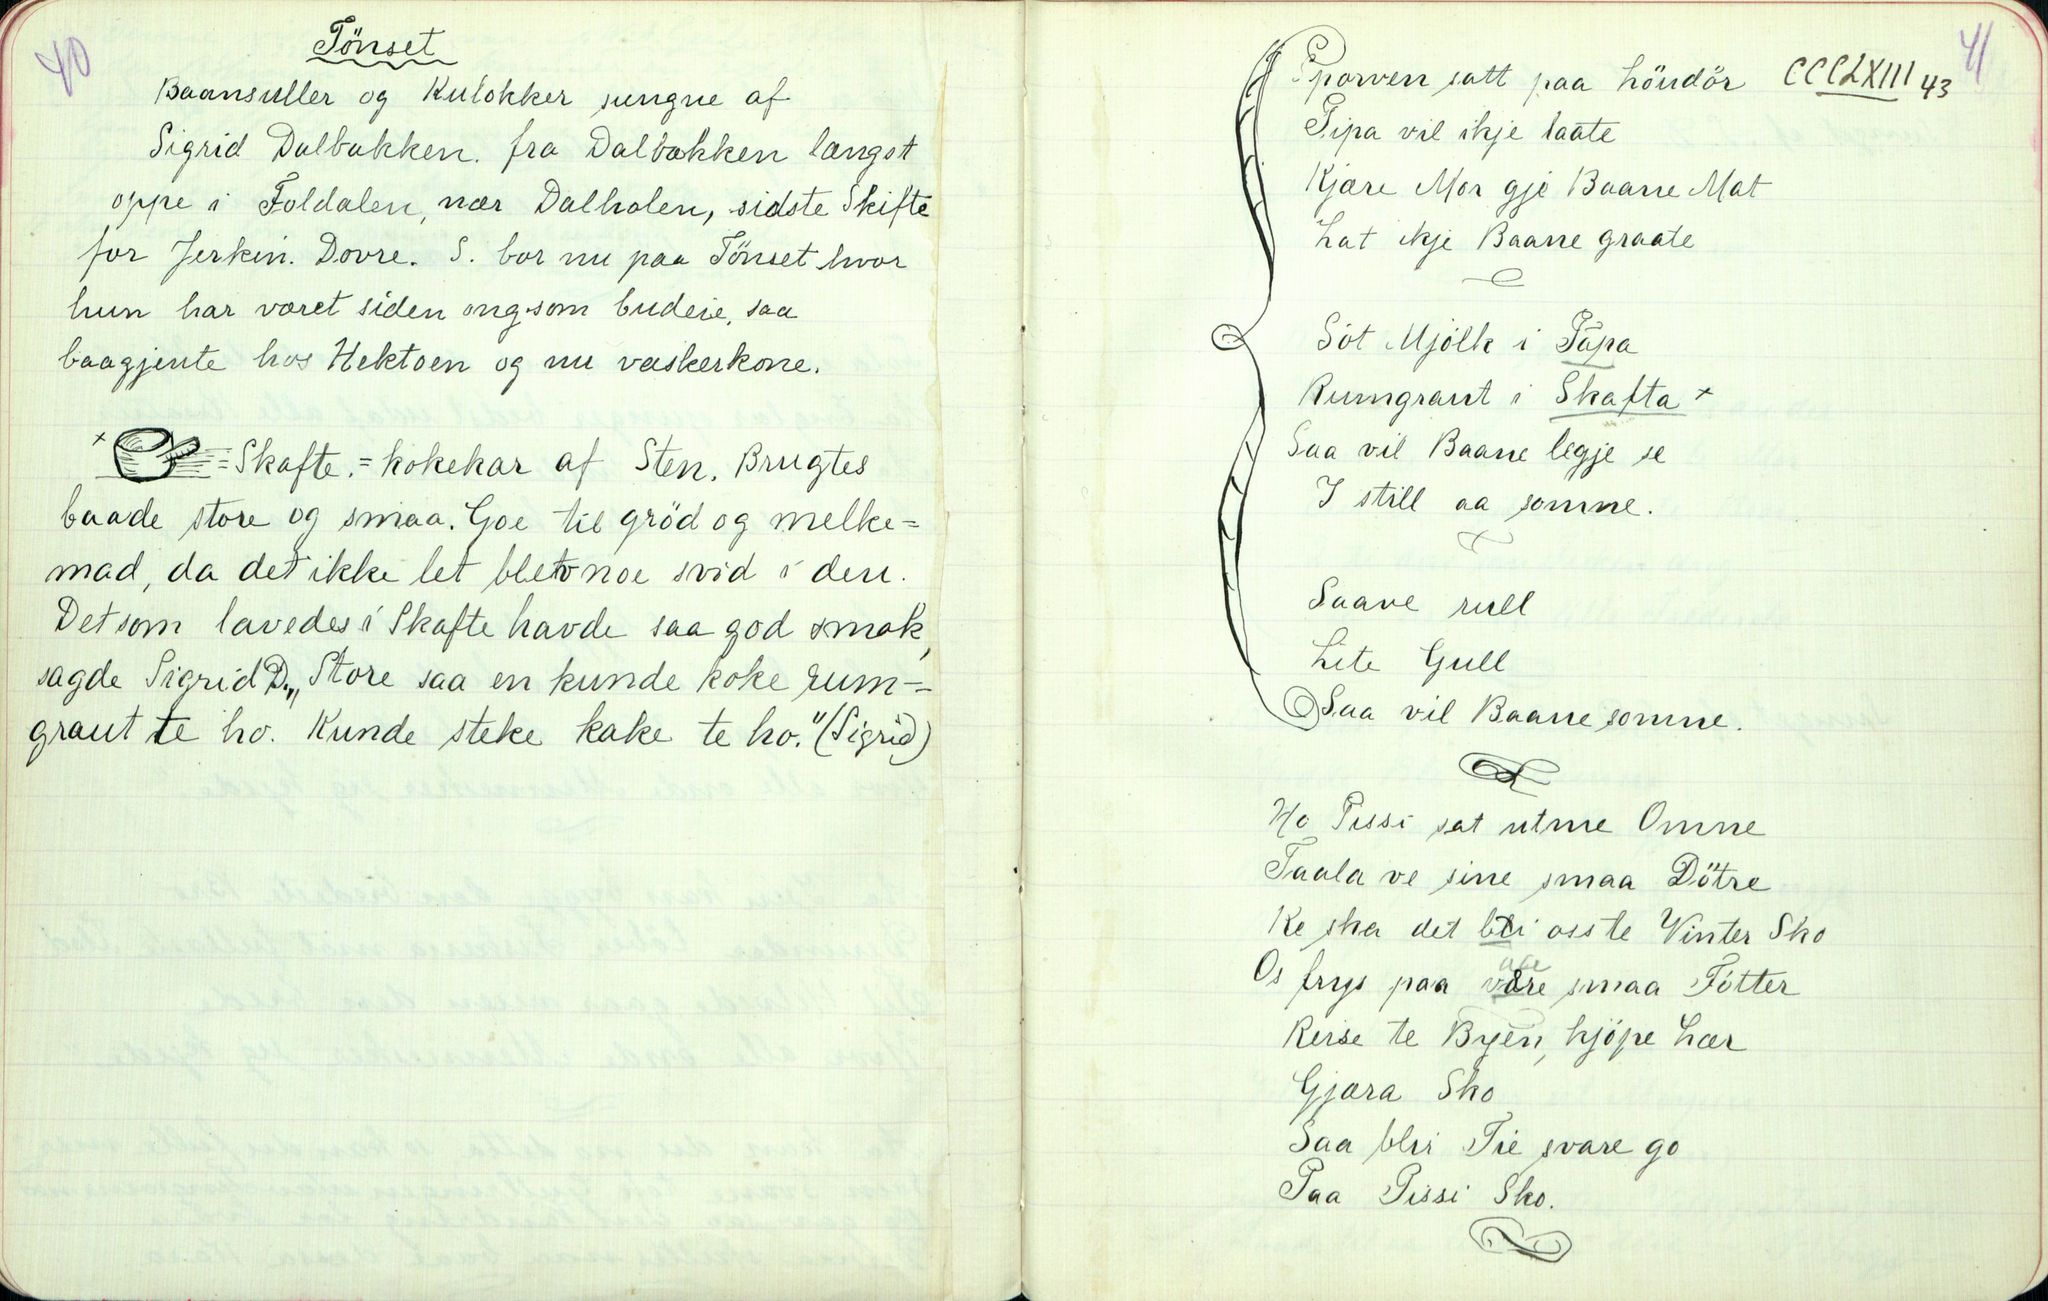 40
Tönset
Baansuller og Kulokker sungne af
Sigrid Dalbakken. fra Dalbakken længst
oppe i Foldalen, nær Dalholen, sidste Skifte
for Jerkin. Dovre. S. bor nu paa Tönset hvor
hun har været siden ung som budeie, saa
baagjente hos Hektoen og nu vaskerkone.
x = Skafte. = kokekar af Sten. Brugtes
baade store og smaa. Goe til gröd og melke=
mad, da det ikke let blev noe svid i den.
Det som lavedes i Skafte havde saa god smak,
sagde Sigrid D. „Store saa en kunde koke rum=
graut te ho. Kunde steke kake te ho." (Sigrid)
41
CCCLXIII 43
Sporven satt paa höudör
Pipa vil ikje laate
Kjære Mor gje Baane Mat
Lat ikje Baane graate
Söt Mjölk i Papa
Rumgraut i Skafta x
Saa vil Baane legje se
I still aa somne.
Saave rull
Lite Gull
Saa vil Baane somne.
Ho Pissi sat utme Omne
Taala ve sine smaa Dötre
Ke ska det bli oss te Vinter Sko
Os frys paa våre smaa Fötter
Reise te Byen, kjöpe Lær
Gjæra Sko
Saa bli Tie svare go
Paa Pissi Sko.